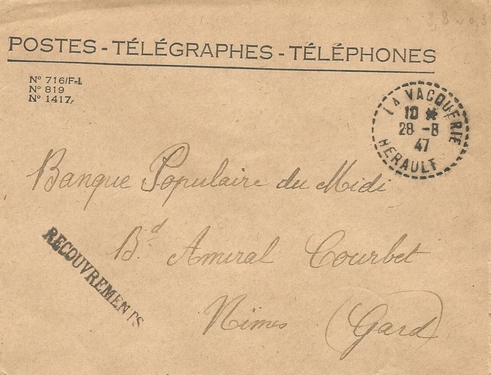 POSTES - TÉLÉGRAPHES - TÉLÉPHONES
N° 716/F-I.
N° 819
N° 1417.
LA VACQUERIE
10 *
28 - 8
47
HERAULT
Banque Populaire du Midi
Bd Amiral Courbet
RECOUVREMENTS
Nimes (Gard)